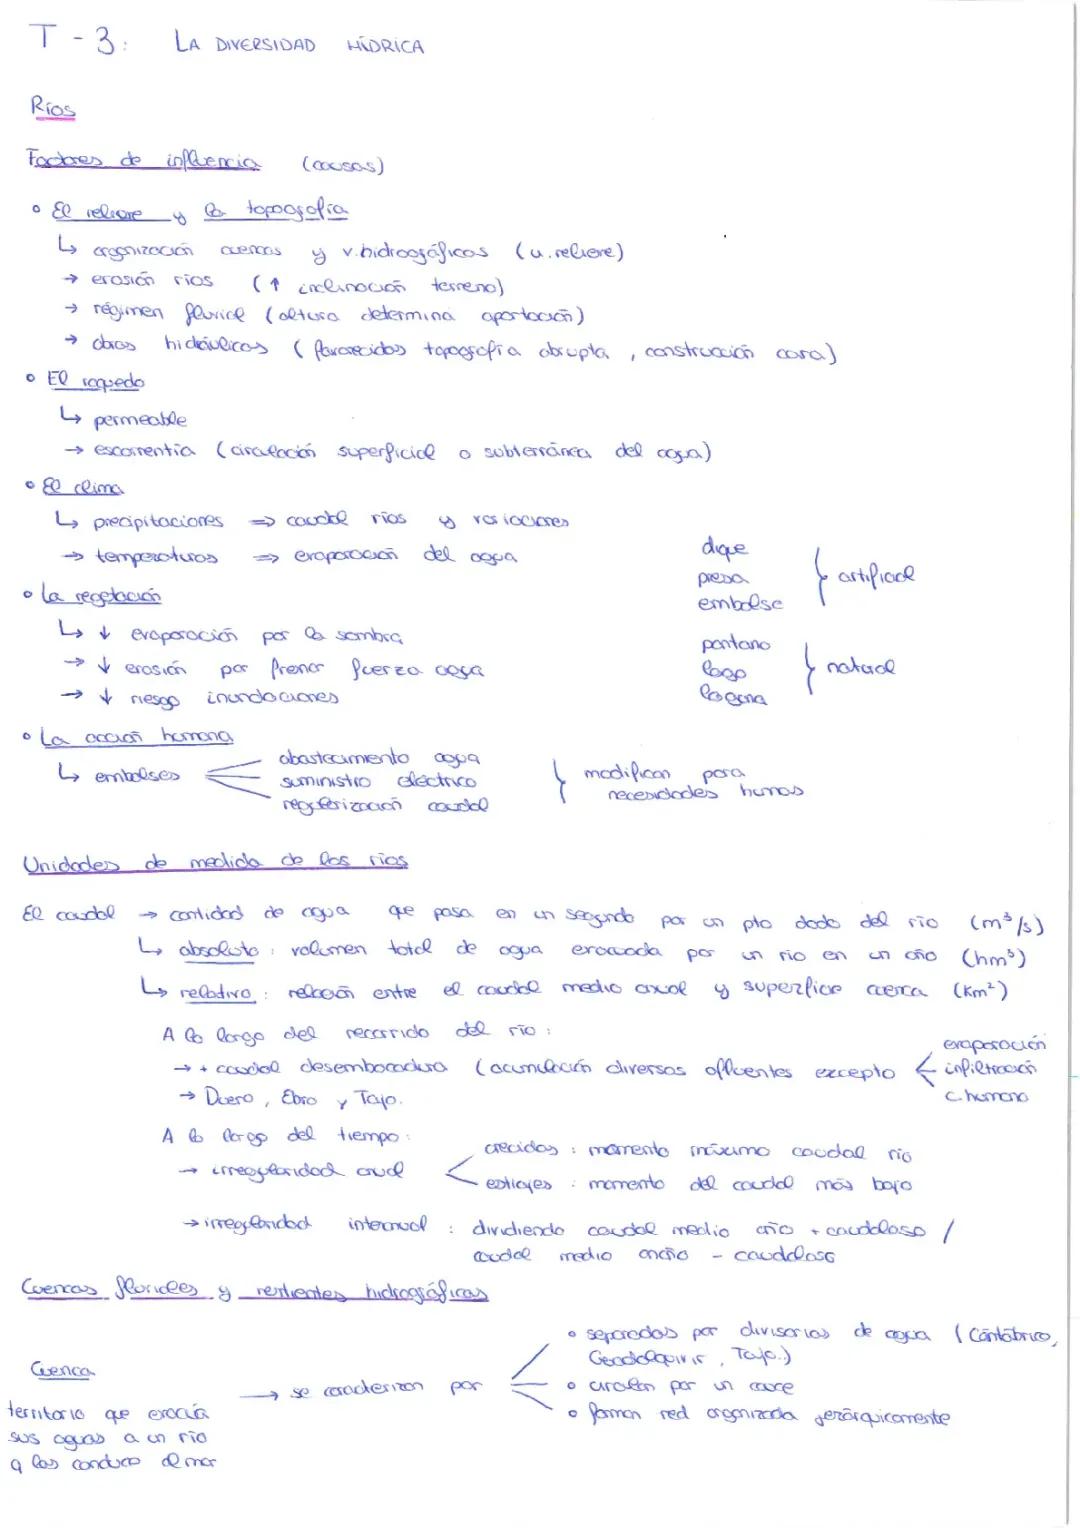 T-3: LA DIVERSIDAD HÍDRICA
Ríos
Factores de influencia (causas)
• El relieve y la topografía
↳ organización cuencas y v.hidrográficos (u.relieve)
→ erosión ríos (↑ inclinación terreno)
→ régimen fluvial (altura determina aportación)
→ obras hidráulicas (favorecidas topografía abrupta, construcción cara)
• El roquedo
↳ permeable
→ escorrentía (circulación superficial o subterránea del agua)
• El clima
↳ precipitaciones ⇒ caudal ríos y variaciones
→ temperaturas ⇒ evaporación del agua
dique
presa
embalse
} artificial
• La vegetación
↳ ↓ evaporación por la sombra
→ ↓ erosión por frenar fuerza agua
→ ↓ riesgo inundaciones
pantano
lago
laguna
} natural
• La acción humana
↳ embalses
abastecimiento agua
suministro eléctrico
regularización caudal
} modifican para
necesidades humas
Unidades de medida de los ríos
El caudal → cantidad de agua que pasa en un segundo por un pto dado del río (m³/s)
↳ absoluto: volumen total de agua evacuada por un río en un año (hm³)
↳ relativo: relación entre el caudal medio anual y superficie cuenca (Km²)
A lo largo del recorrido del río:
→ + caudal desembocadura (acumulación diversos afluentes excepto
evaporación
infiltración
c.humano
→ Duero, Ebro y Tajo.
A lo largo del tiempo:
→ irregularidad anual
crecidas: momento máximo caudal río
estiajes: momento del caudal más bajo
→ irregularidad interanual: dividiendo caudal medio año + caudaloso /
caudal medio año - caudaloso
Cuencas fluviales y vertientes hidrográficas
Cuenca
territorio que evacúa
sus aguas a un río
q las conduce al mar
→ se caracterizan por
• separadas por divisorias de agua (Cantábrico,
Guadalquivir, Tajo.)
• circulan por un cauce
• forman red organizada jerárquicamente